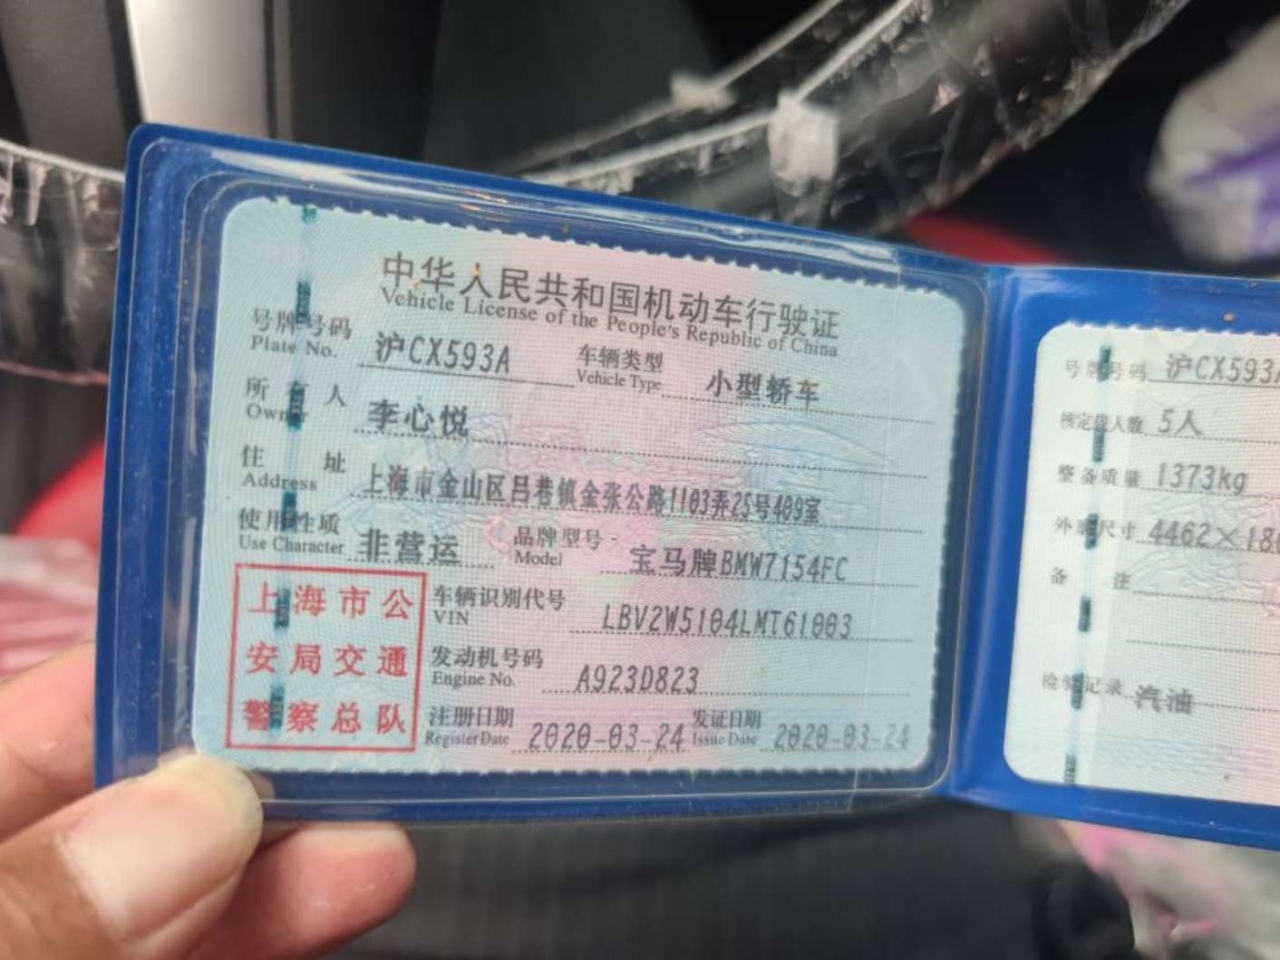 中华人民共和国机动车行驶证
Vehicle License of the People's Republic of China
号牌号码 沪CX593A 车辆类型 小型轿车
Plate No. Vehicle Type
所有人 李心悦
Owner
住址 上海市金山区吕巷镇金张公路1103弄25号409室
Address
使用性质 非营运 品牌型号 宝马牌BMW7154FC
Use Character Model
上海市公
安局交通
警察总队
车辆识别代号 LBV2W5104LMT61003
VIN
发动机号码 A923D823
Engine No.
注册日期 2020-03-24 发证日期 2020-03-24
Register Date Issue Date
号牌号码 沪CX593A
核定载人数 5人
整备质量 1373kg
外廓尺寸 4462×18
备注
检验记录 汽油